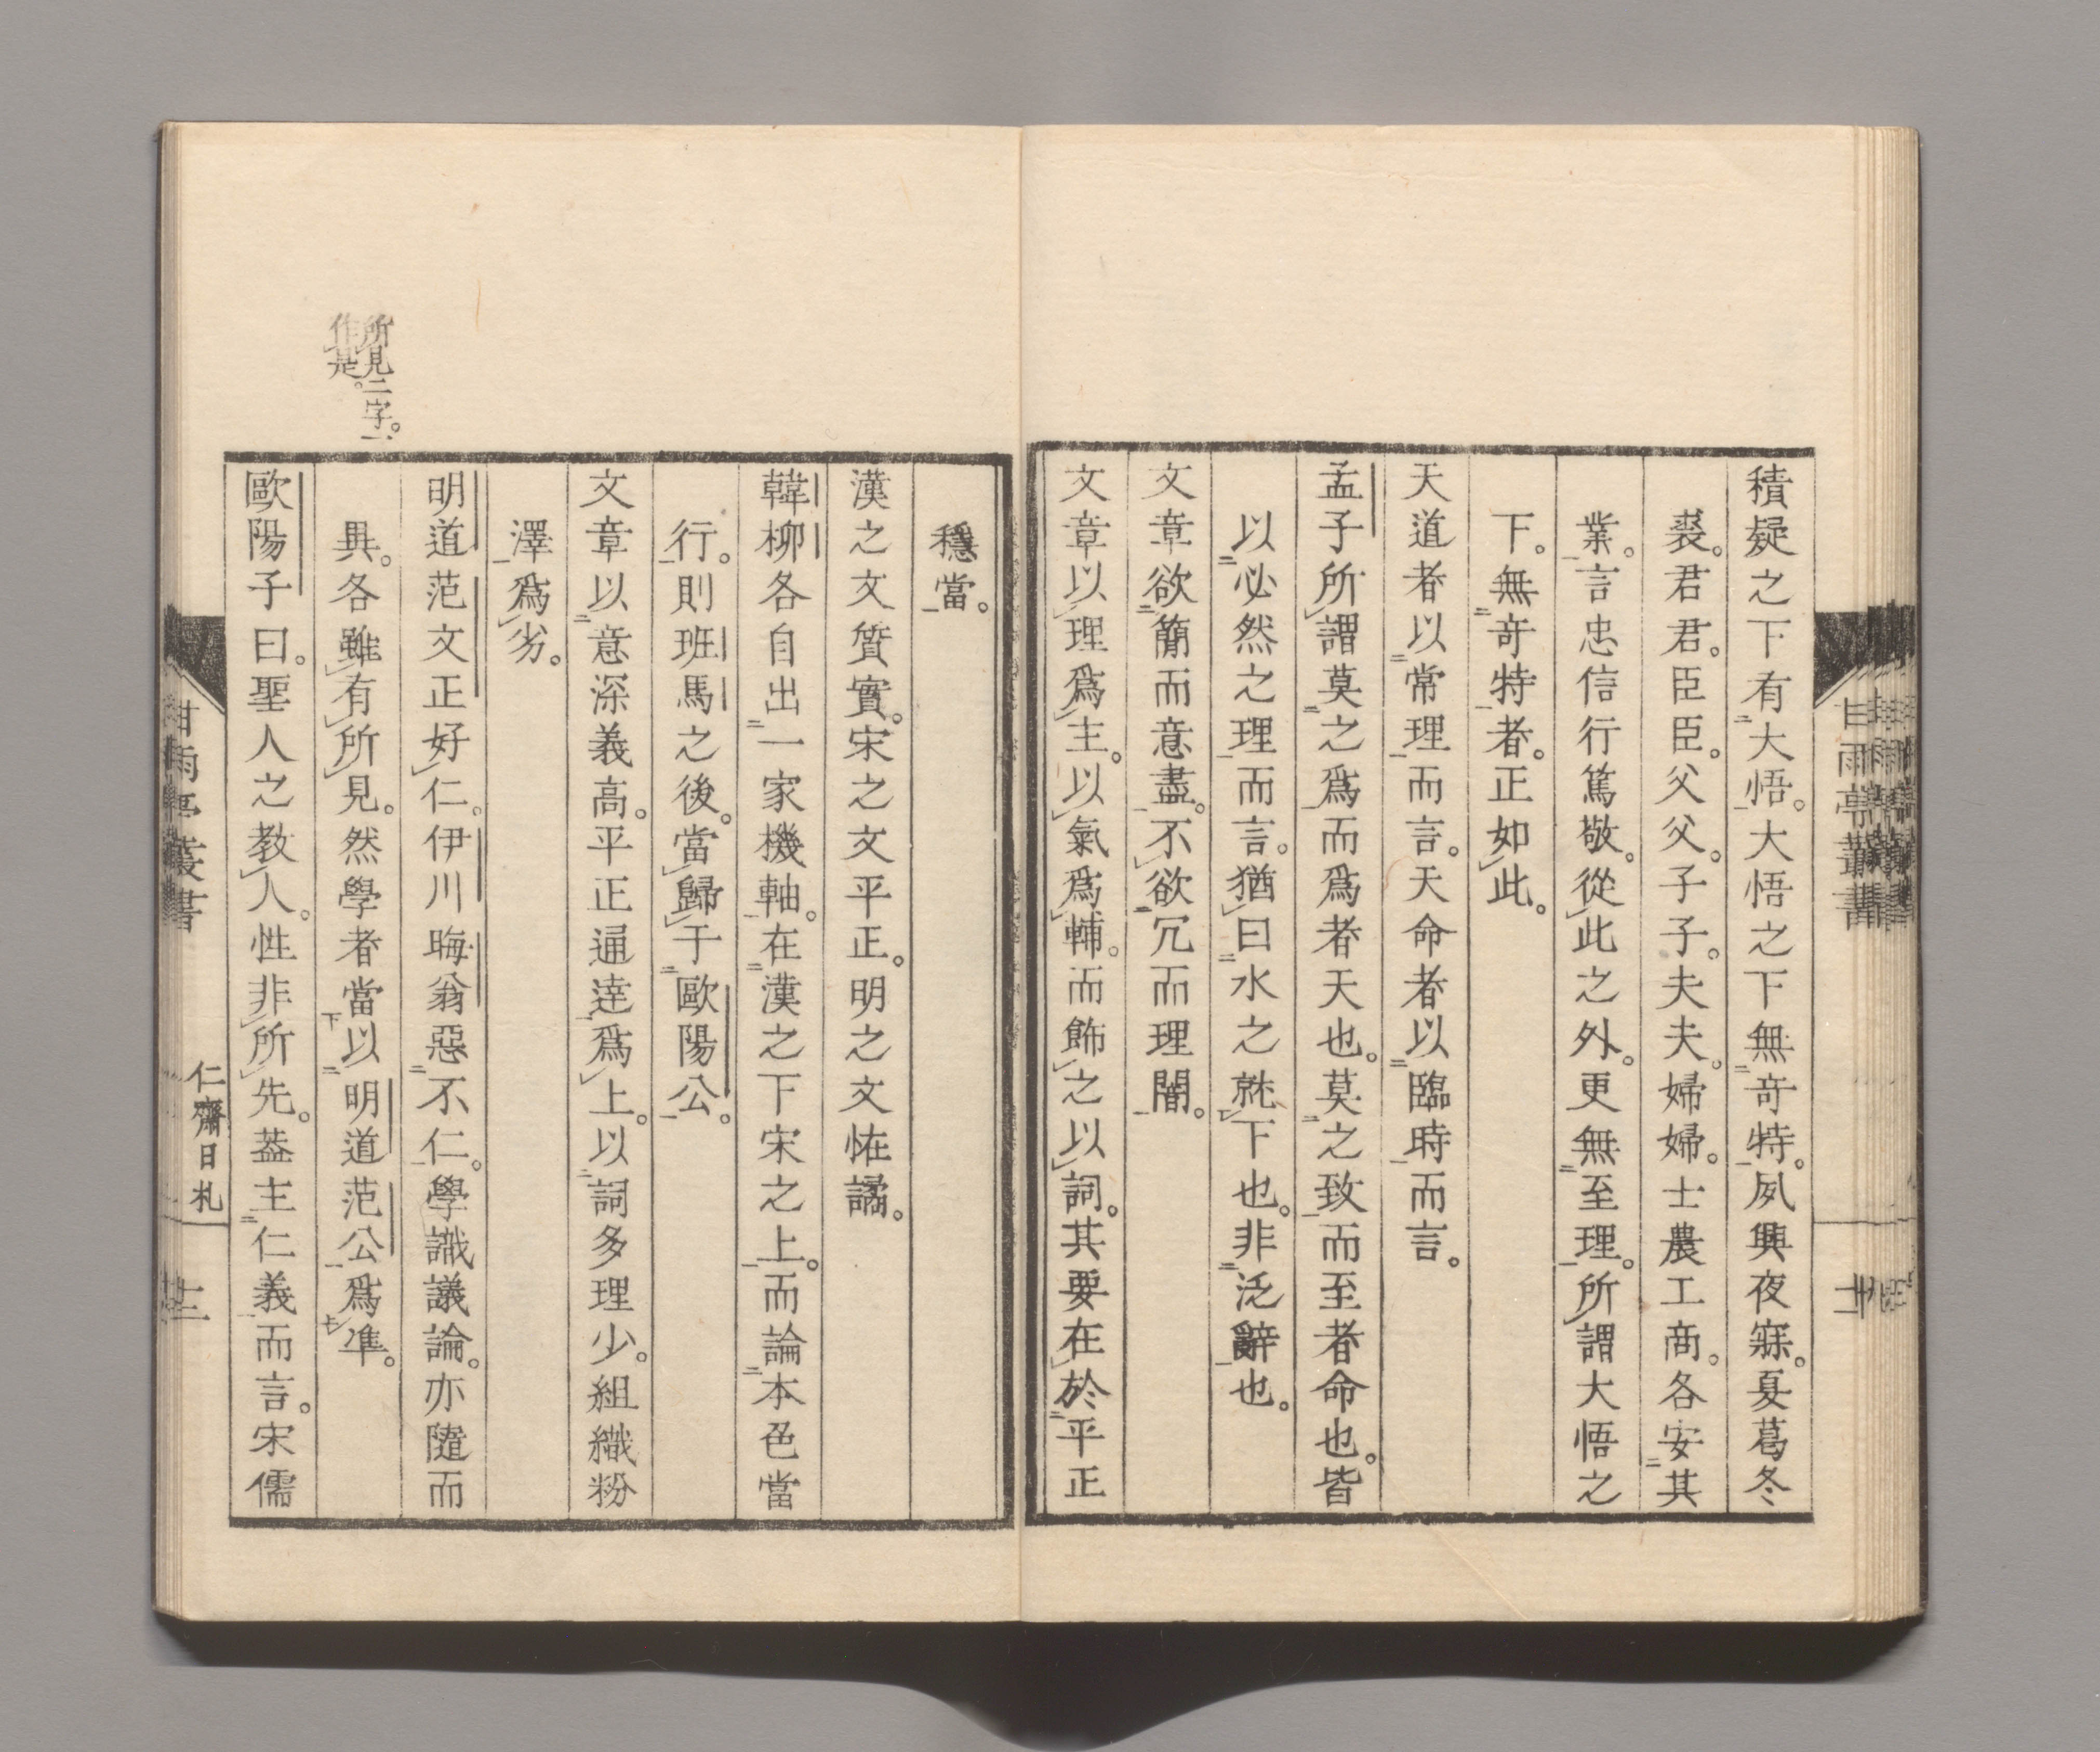 積疑之下有大悟。大悟之下無奇特。夙興夜寐。夏葛冬
裘。君君。臣臣。父父。子子。夫夫。婦婦。士農工商。各安其
業。言忠信行篤敬。從此之外。更無至理。所謂大悟之
下。無奇特者。正如此。
天道者以常理而言。天命者以臨時而言。
孟子所謂莫之爲而爲者天也。莫之致而至者命也。皆
以必然之理而言。猶曰水之就下也。非泛辭也。
文章欲簡而意盡。不欲冗而理闇。
文章以理爲主。以氣爲輔。而飾之以詞。其要在於平正
穩當。
漢之文質實。宋之文平正。明之文恠譎。
韓柳各自出一家機軸。在漢之下宋之上。而論本色當
行。則班馬之後。當歸于歐陽公。
文章以意深義高。平正通達爲上。以詞多理少。組織粉
澤爲劣。
明道范文正好仁。伊川晦翁惡不仁。學識議論。亦隨而
異。各雖有所見。然學者當以明道范公爲準。
歐陽子曰。聖人之教人。性非所先。葢主仁義而言。宋儒
所見二字。一
作是。
甘雨亭叢書
仁齋日札
甘雨亭叢書